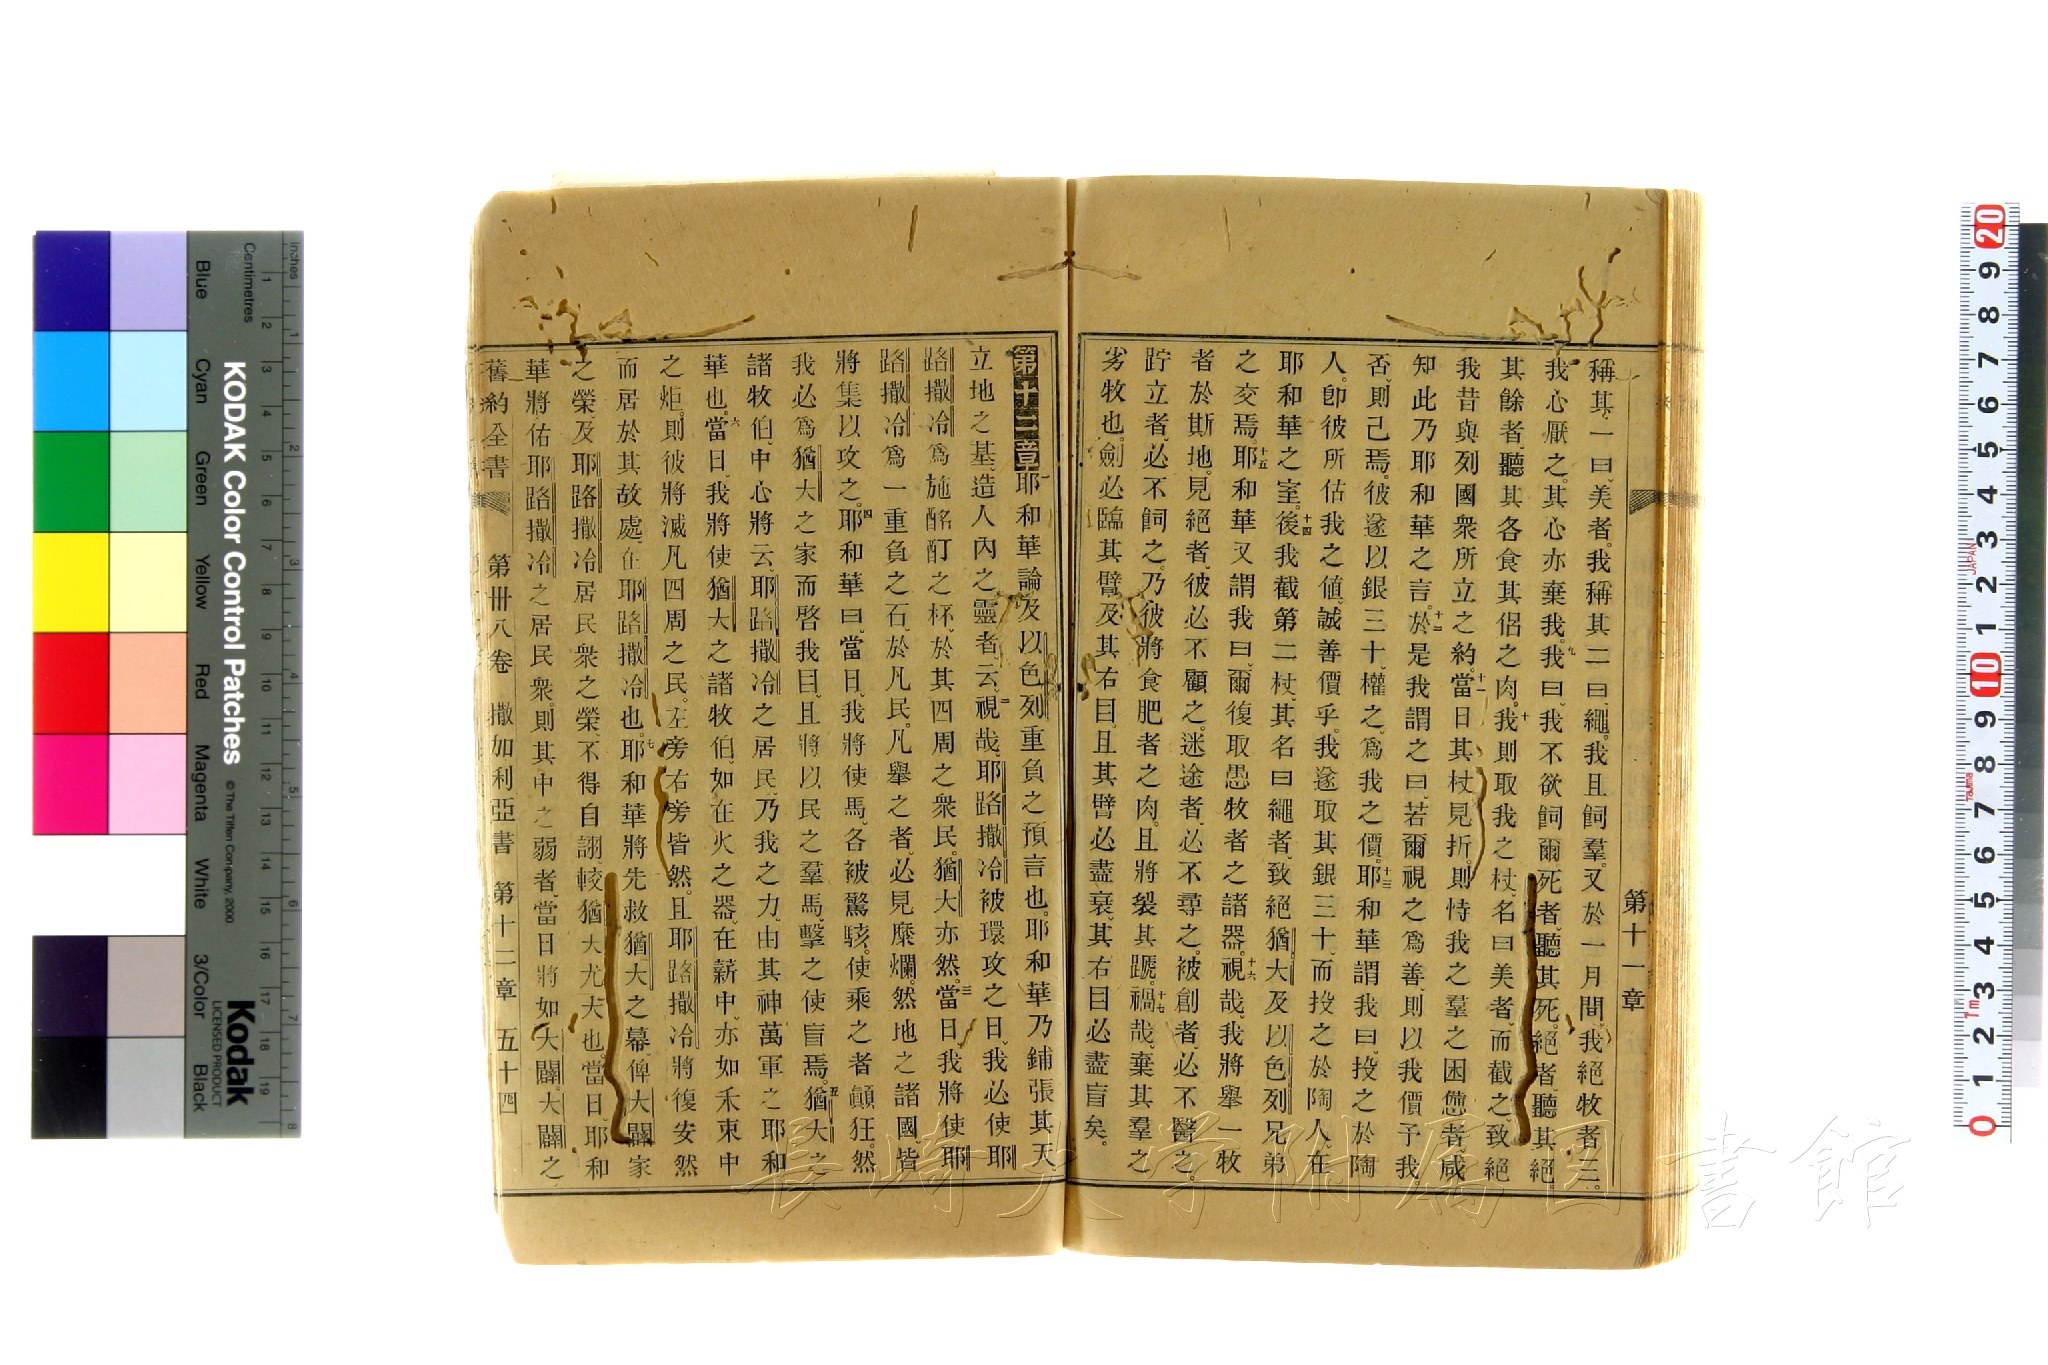 第十一章
稱其一曰美者。我稱其二曰繩。我且飼羣。又於一月間、我絕牧者三。
我心厭之。其心亦棄我。九我曰、我不欲飼爾。死者、聽其死。絕者、聽其絕。
其餘者、聽其各食其侶之肉。十我則取我之杖、名曰美者、而截之、致絕
我昔與列國衆所立之約。十一當日其杖見折。則恃我之羣之困憊者、咸
知此乃耶和華之言。十二於是我謂之曰、若爾視之爲善、則以我價予我。
否、則已焉。彼遂以銀三十、權之、爲我之價。十三耶和華謂我曰、投之於陶
人。卽彼所估我之値、誠善價乎。我遂取其銀三十、而投之於陶人、在
耶和華之室。十四後我截第二杖、其名曰繩者、致絕猶大及以色列兄弟
之交焉。十五耶和華又謂我曰、爾復取愚牧者之諸器。十六視哉、我將舉一牧
者於斯地。見絕者、彼必不顧之。迷途者、必不尋之。被創者、必不醫之。
跕立者、必不飼之。乃彼將食肥者之肉。且將裂其蹏。十七禍哉、棄其羣之
劣牧也。劍必臨其臂、及其右目、且其臂必盡衰、其右目必盡盲矣。
第十二章 一耶和華論及以色列重負之預言也。耶和華乃鋪張其天
立地之基、造人內之靈者云、二視哉、耶路撒冷被環攻之日、我必使耶
路撒冷爲施酩酊之杯、於其四周之衆民。猶大亦然。三當日我將使耶
路撒冷爲一重負之石、於凡民。凡舉之者、必見糜爛。然地之諸國皆
將集以攻之。四耶和華曰、當日、我將使馬、各被驚駭、使乘之者顚狂。然
我必爲猶大之家而啓我目、且將以民之羣馬、擊之使盲焉。五猶大之
諸牧伯、中心將云、耶路撒冷之居民、乃我之力、由其神萬軍之耶和
華也。六當日、我將使猶大之諸牧伯、如在火之器、在薪中、亦如禾束中
之炬。則彼將滅凡四周之民、左旁右旁皆然。且耶路撒冷將復安然
而居於其故處、在耶路撒冷也。七耶和華將先救猶大之幕、俾大闢家
之榮、及耶路撒冷居民衆之榮、不得自詡、較猶大尤大也。當日耶和
華將佑耶路撒冷之居民衆。則其中之弱者當日將如大闢。大闢之
舊約全書 第卅八卷 撒加利亞書 第十二章 五十四
KODAK Color Control Patches
© The Tiffen Company, 2000
Kodak
LICENSED PRODUCT
inches
Centimetres
Blue Cyan Green Yellow Red Magenta White 3/Color Black
長崎大学附属図書館
JAPAN